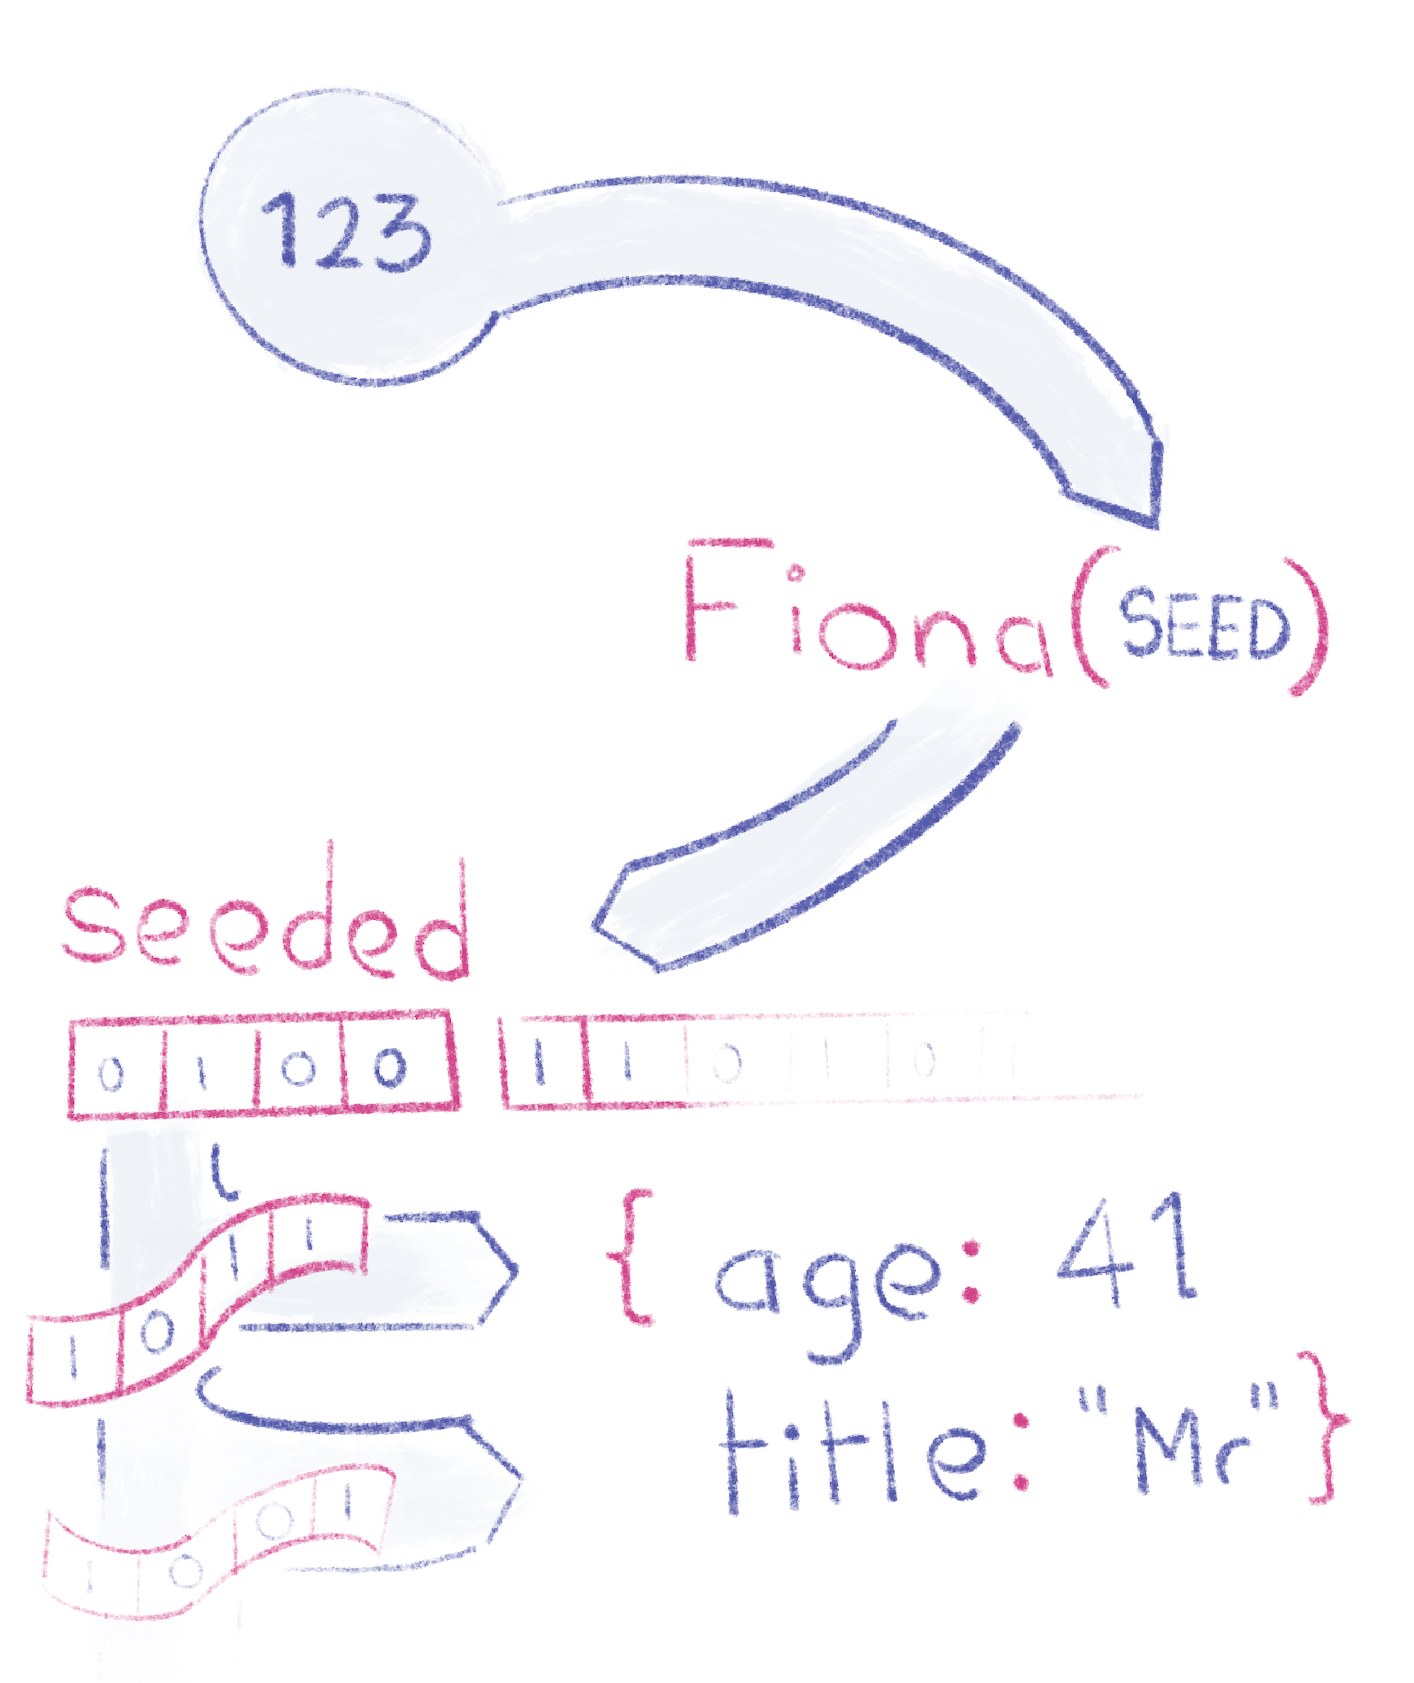 123
Fiona(SEED)
seeded
0 1 0 0 1 1 0 1 0 1
1 0 1 1
{ age: 41
title: "Mr" }
1 0 0 1